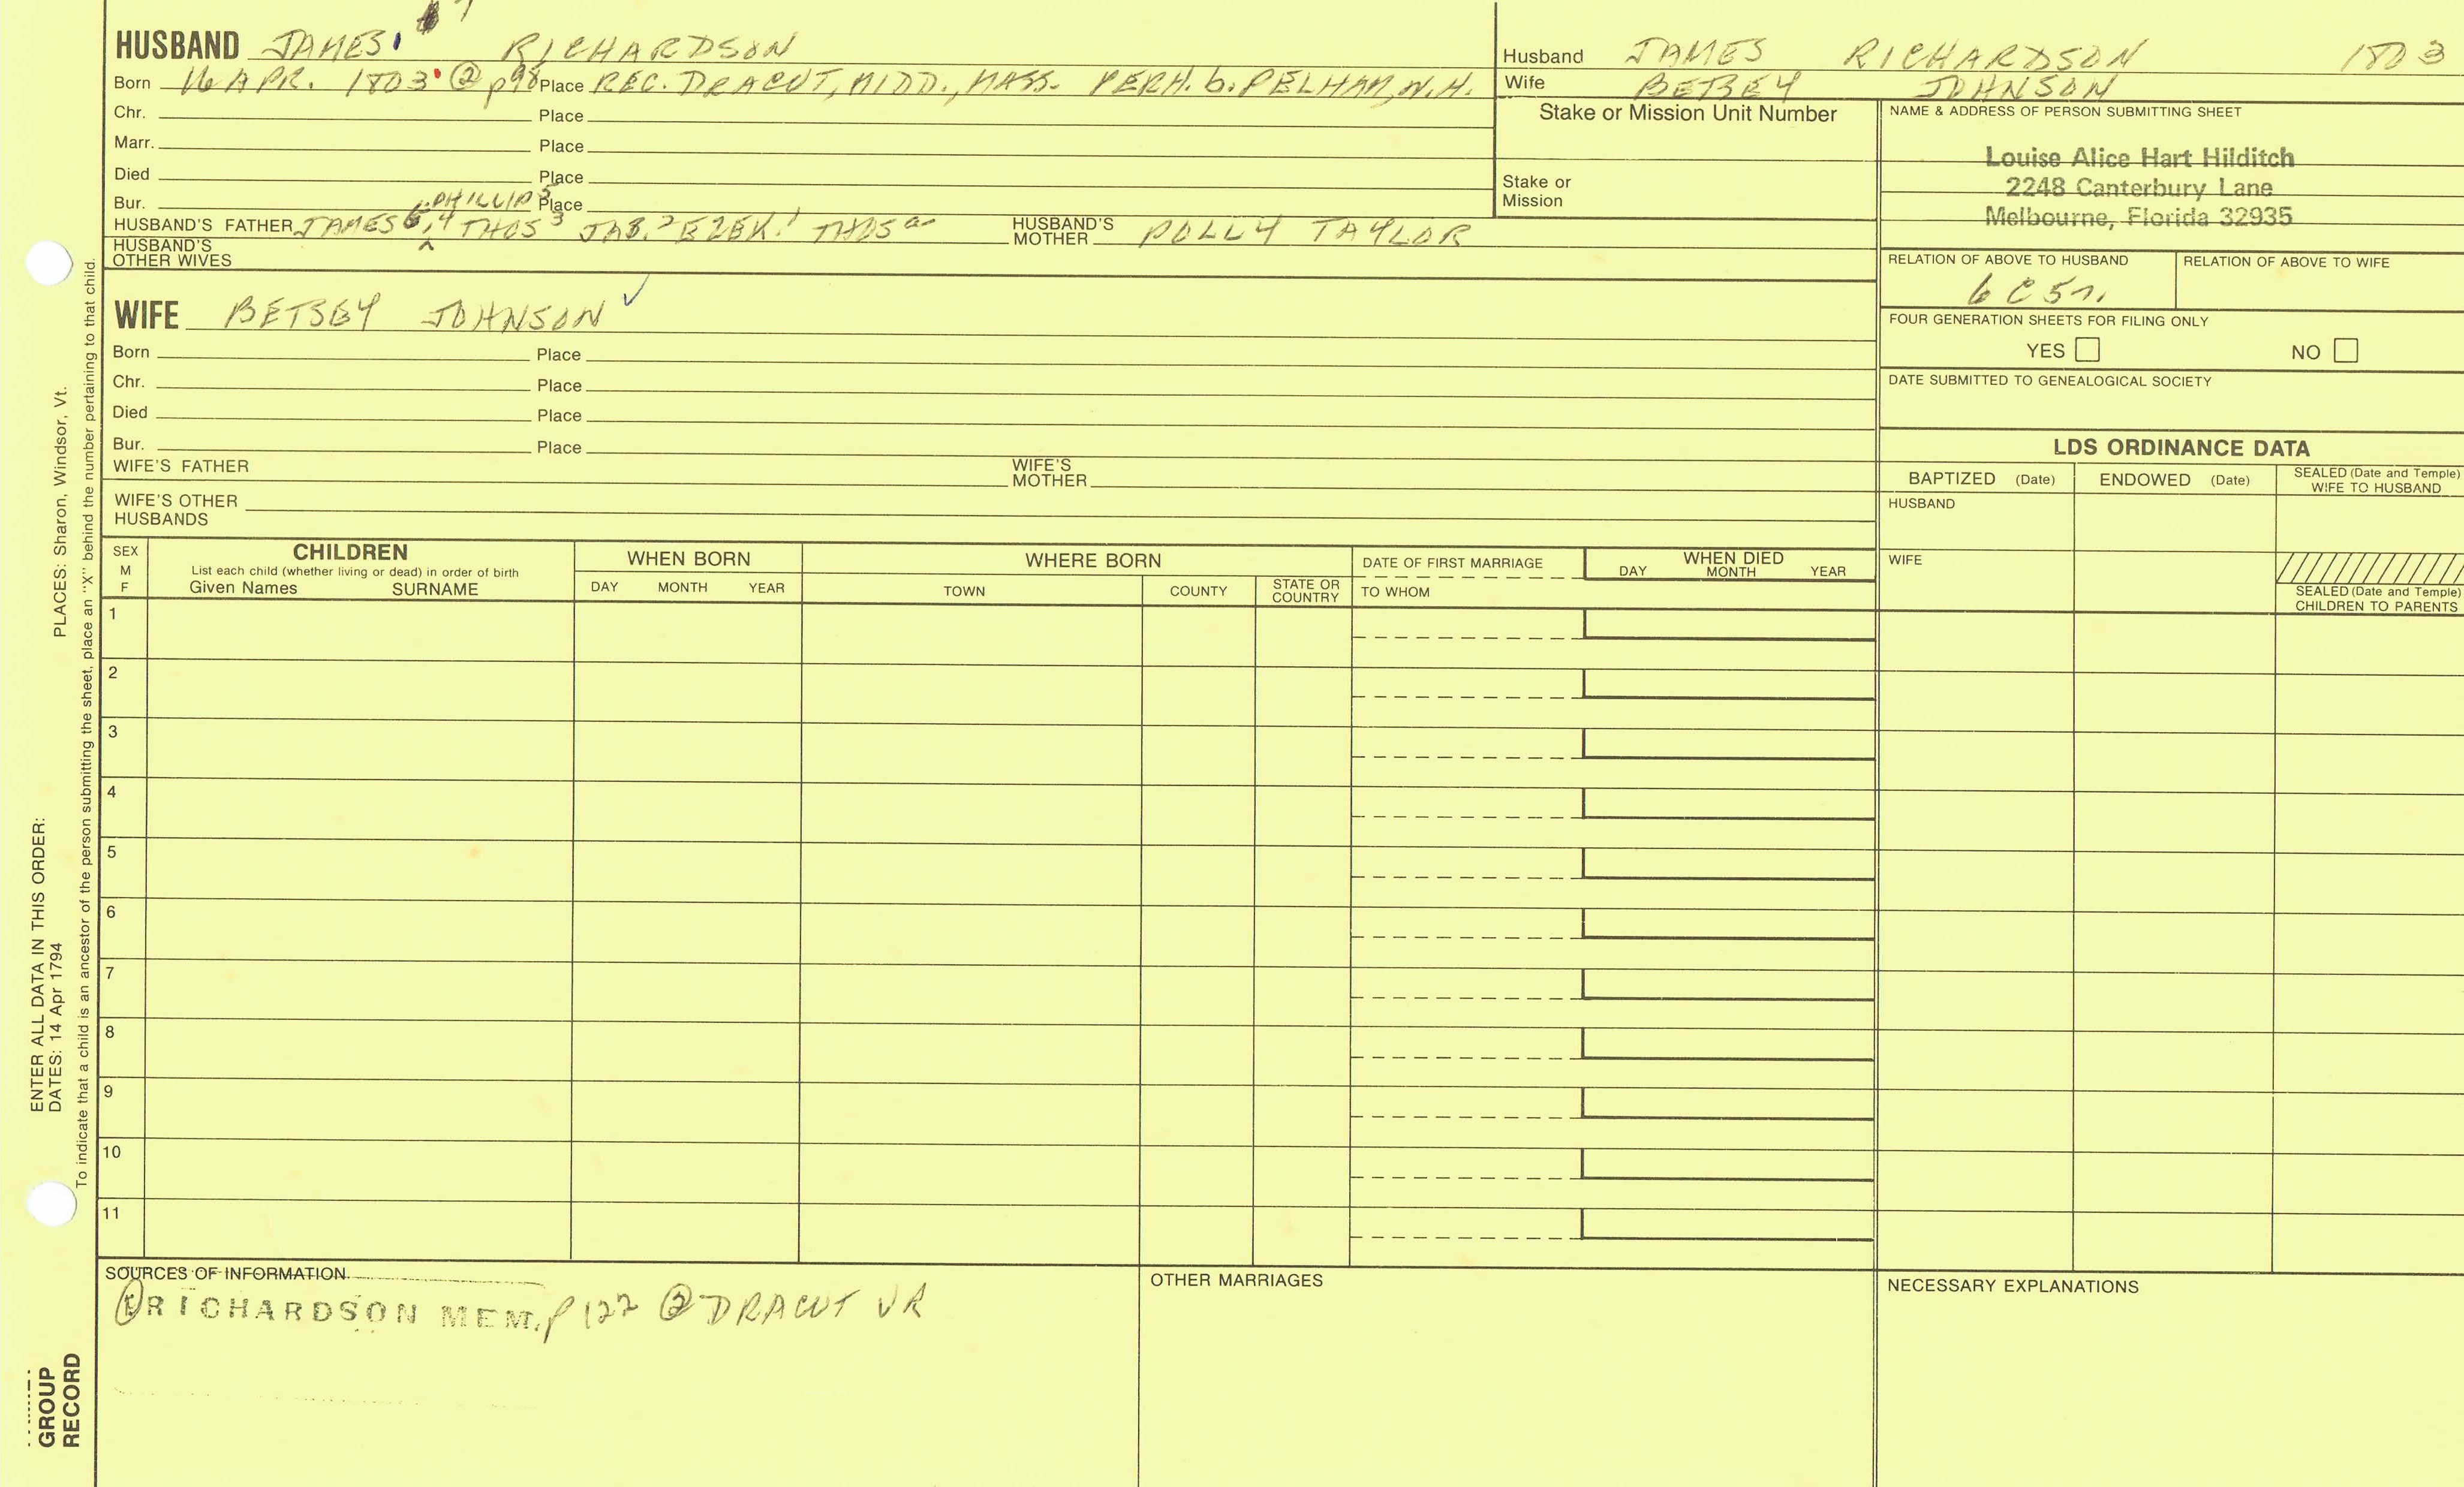 HUSBAND JAMES RICHARDSON
Born 16 APR. 1803 ② p98 Place REC. DRACUT, MIDD., MASS. PERH. b. PELHAM, N.H.
Chr. Place
Marr. Place
Died Place
Bur. Place
PHILLIP 5
HUSBAND'S FATHER JAMES 6, 4 THOS 3 JAS. 2 EZEK. 1 THOS a HUSBAND'S MOTHER POLLY TAYLOR
HUSBAND'S OTHER WIVES
Husband JAMES RICHARDSON 1803
Wife BETSEY JOHNSON
Stake or Mission Unit Number
Stake or
Mission
NAME & ADDRESS OF PERSON SUBMITTING SHEET
Louise Alice Hart Hilditch
2248 Canterbury Lane
Melbourne, Florida 32935
RELATION OF ABOVE TO HUSBAND RELATION OF ABOVE TO WIFE
6C5r.
FOUR GENERATION SHEETS FOR FILING ONLY
YES NO
DATE SUBMITTED TO GENEALOGICAL SOCIETY
WIFE BETSEY JOHNSON ✓
Born Place
Chr. Place
Died Place
Bur. Place
WIFE'S FATHER WIFE'S MOTHER
WIFE'S OTHER
HUSBANDS
LDS ORDINANCE DATA
BAPTIZED (Date) ENDOWED (Date) SEALED (Date and Temple) WIFE TO HUSBAND
HUSBAND
WIFE
SEALED (Date and Temple)
CHILDREN TO PARENTS
SEX M F
CHILDREN
List each child (whether living or dead) in order of birth
Given Names SURNAME
WHEN BORN
DAY MONTH YEAR
WHERE BORN
TOWN COUNTY STATE OR COUNTRY
DATE OF FIRST MARRIAGE
TO WHOM
WHEN DIED
DAY MONTH YEAR
1
2
3
4
5
6
7
8
9
10
11
SOURCES OF INFORMATION
① RICHARDSON MEM. p 122 ② DRACUT VR
OTHER MARRIAGES
NECESSARY EXPLANATIONS
ENTER ALL DATA IN THIS ORDER:
DATES: 14 Apr 1794 PLACES: Sharon, Windsor, Vt.
To indicate that a child is an ancestor of the person submitting the sheet, place an "X" behind the number pertaining to that child.
GROUP
RECORD